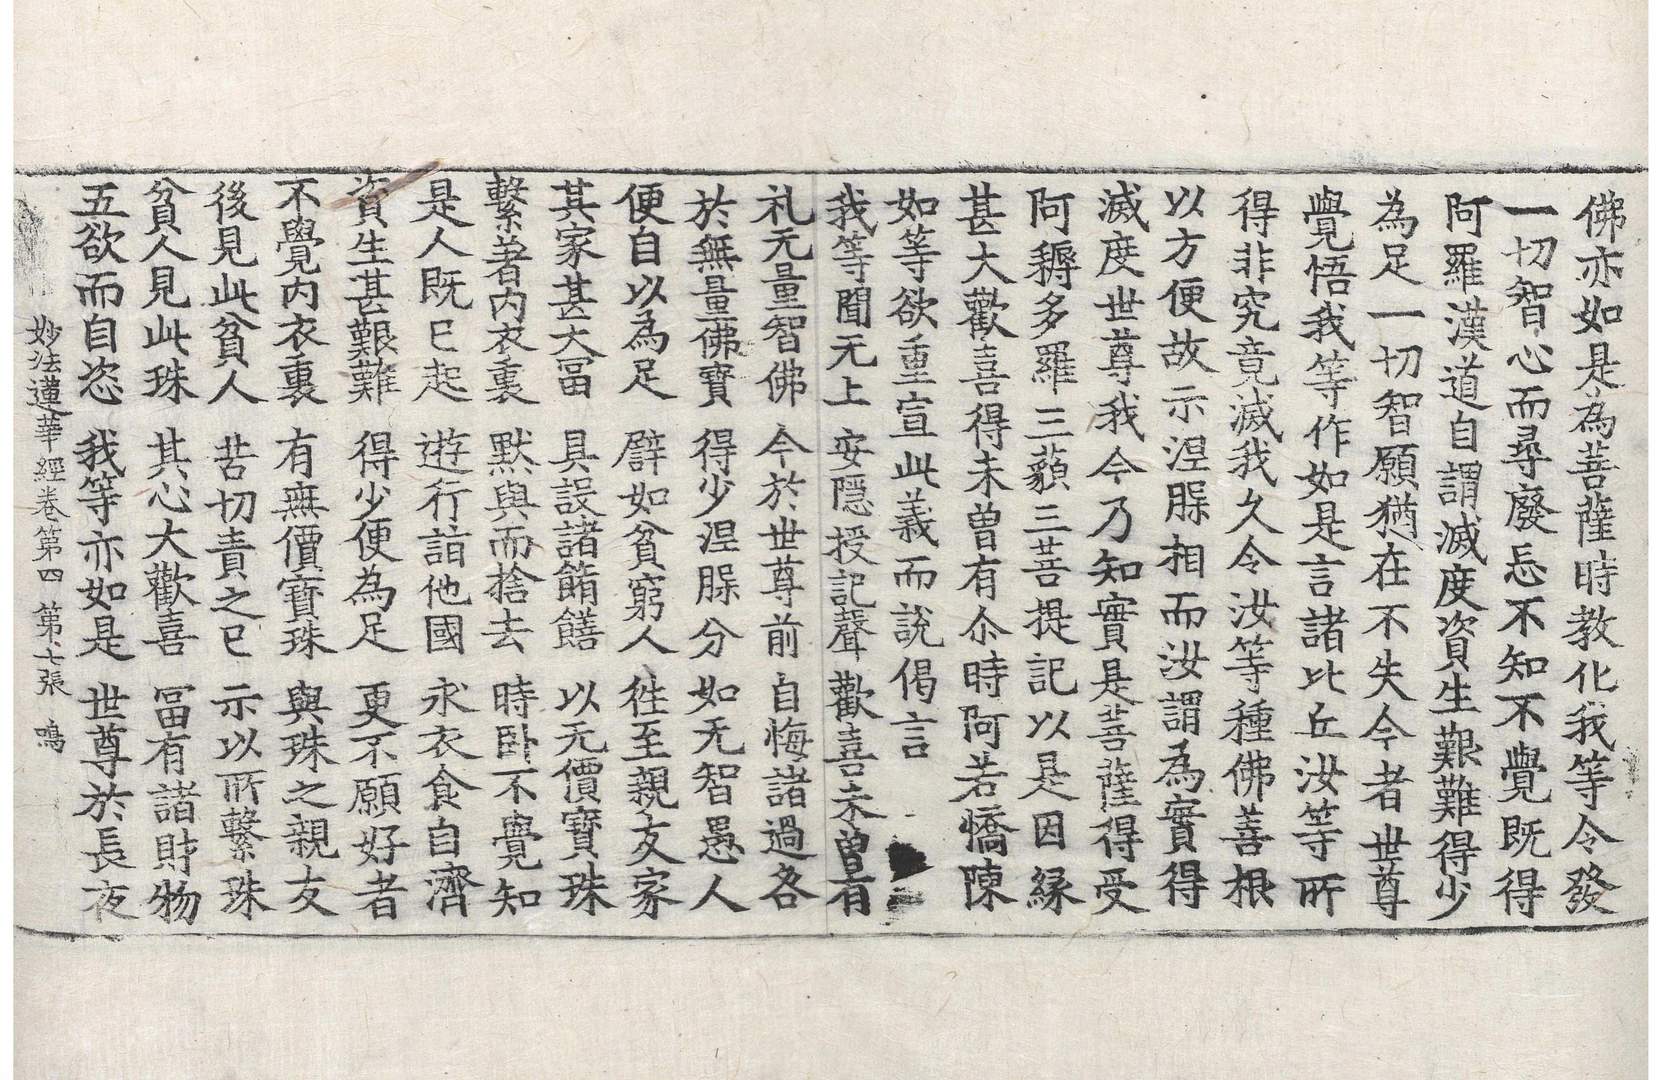 佛亦如是為菩薩時教化我等令發
一切智心而尋廢忘不知不覺既得
阿羅漢道自謂滅度資生艱難得少
為足一切智願猶在不失今者世尊
覺悟我等作如是言諸比丘汝等所
得非究竟滅我久令汝等種佛善根
以方便故示涅槃相而汝謂為實得
滅度世尊我今乃知實是菩薩得受
阿耨多羅三藐三菩提記以是因緣
甚大歡喜得未曾有尒時阿若憍陳
如等欲重宣此義而說偈言
我等聞无上 安隱授記聲 歡喜未曾有
礼无量智佛 今於世尊前 自悔諸過咎
於無量佛寶 得少涅槃分 如无智愚人
便自以為足 譬如貧窮人 往至親友家
其家甚大冨 具設諸餚饍 以无價寶珠
繫著内衣裏 默與而捨去 時卧不覺知
是人既已起 遊行詣他國 求衣食自濟
資生甚艱難 得少便為足 更不願好者
不覺内衣裏 有無價寶珠 與珠之親友
後見此貧人 苦切責之已 示以所繫珠
貧人見此珠 其心大歡喜 冨有諸財物
五欲而自恣 我等亦如是 世尊於長夜
妙法蓮華經卷第四 第七張 鳴